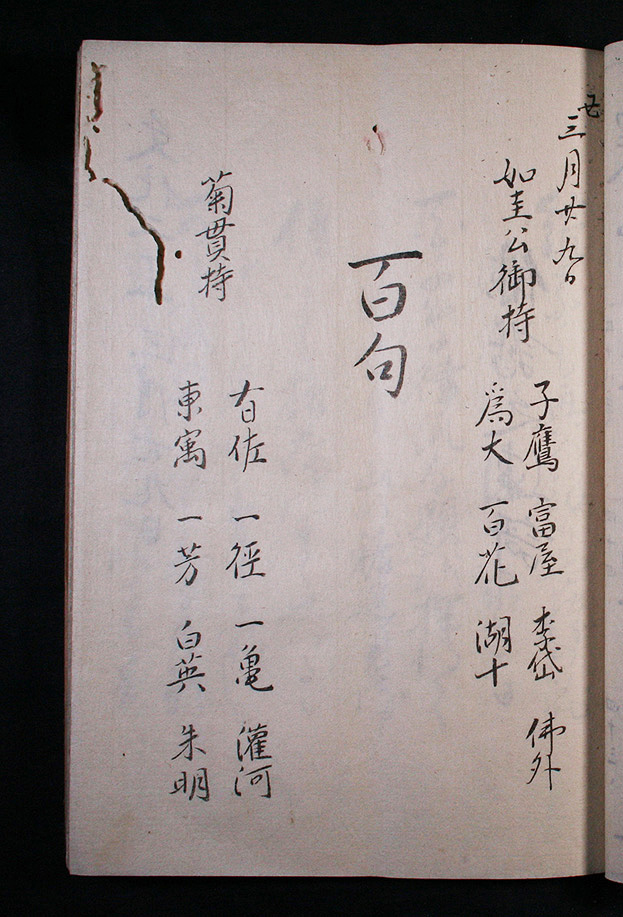 廿
三月廿九日
如圭公御持
子鷹 富屋 李岱 佛外
為大 百花 湖十
百句
菊貫持
右佐 一徑 一亀 灌河
東寓 一芳 白英 朱明